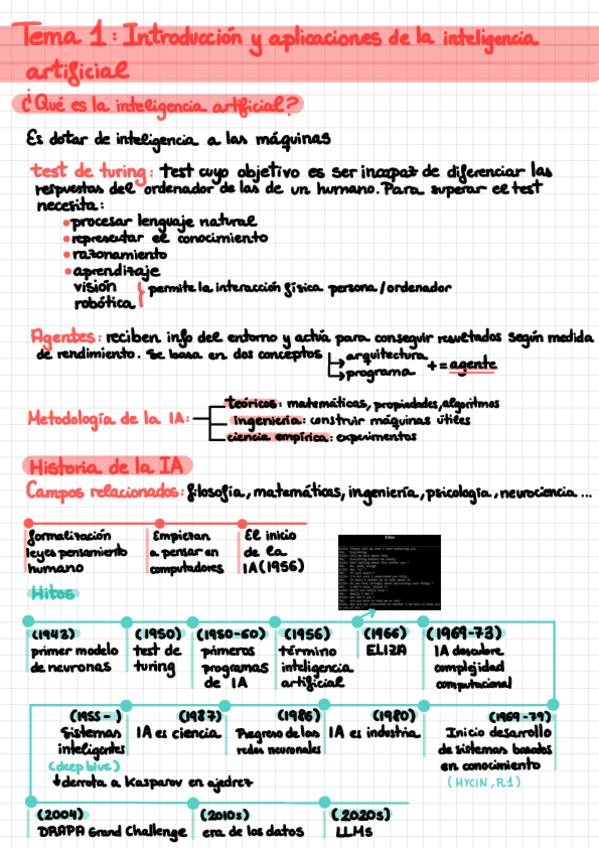 Tema 1: Introducción y aplicaciones de la inteligencia
artificial
¿Qué es la inteligencia artificial?
Es dotar de inteligencia a las máquinas
test de turing: test cuyo objetivo es ser incapaz de diferenciar las
respuestas del ordenador de las de un humano. Para superar el test
necesita:
procesar lenguaje natural
representar el conocimiento
razonamiento
aprendizaje
visión
robótica
permite la interacción física persona/ordenador
Agentes: reciben info del entorno y actúa para conseguir resultados según medida
de rendimiento. Se basa en dos conceptos
arquitectura
programa
+ = agente
Metodología de la IA:
teóricos: matemáticas, propiedades, algoritmos
ingeniería: construir máquinas útiles
ciencia empírica: experimentos
Historia de la IA
Campos relacionados: filosofía, matemáticas, ingeniería, psicología, neurociencia ...
formalización
leyes pensamiento
humano
Empiezan
a pensar en
computadores
El inicio
de la
IA (1956)
Hitos
(1943)
primer modelo
de neuronas
(1950)
test de
turing
(1950-60)
primeros
programas
de IA
(1956)
término
inteligencia
artificial
(1966)
ELIZA
(1969-73)
IA descubre
complejidad
computacional
(1955 - )
Sistemas
inteligentes
(deep blue)
derrota a Kasparov en ajedrez
(1987)
IA es ciencia
(1986)
Regreso de las
redes neuronales
(1980)
IA es industria
(1969-79)
Inicio desarrollo
de sistemas basados
en conocimiento
(MYCIN, R1)
(2004)
DRAPA Grand Challenge
(2010s)
era de los datos
(2020s)
LLMs